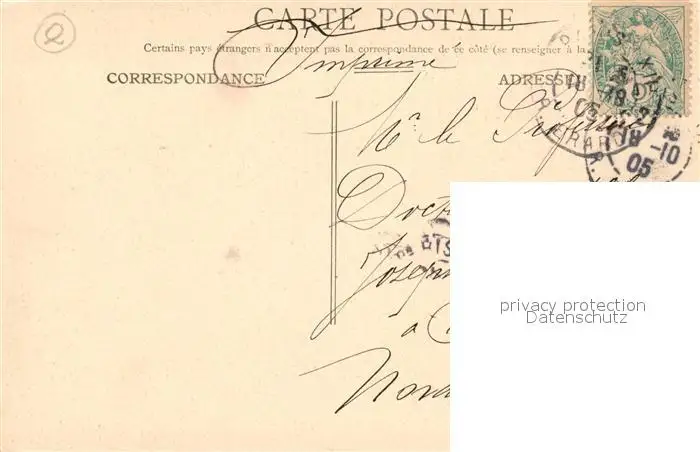 CARTE POSTALE
Certains pays étrangers n'acceptent pas la correspondance de ce côté (se renseigner à la
Imprimé
CORRESPONDANCE
ADRESSE
18 -10
05
Mr le Professeur
Docte
Joseph
à
Nord
privacy protection
Datenschutz